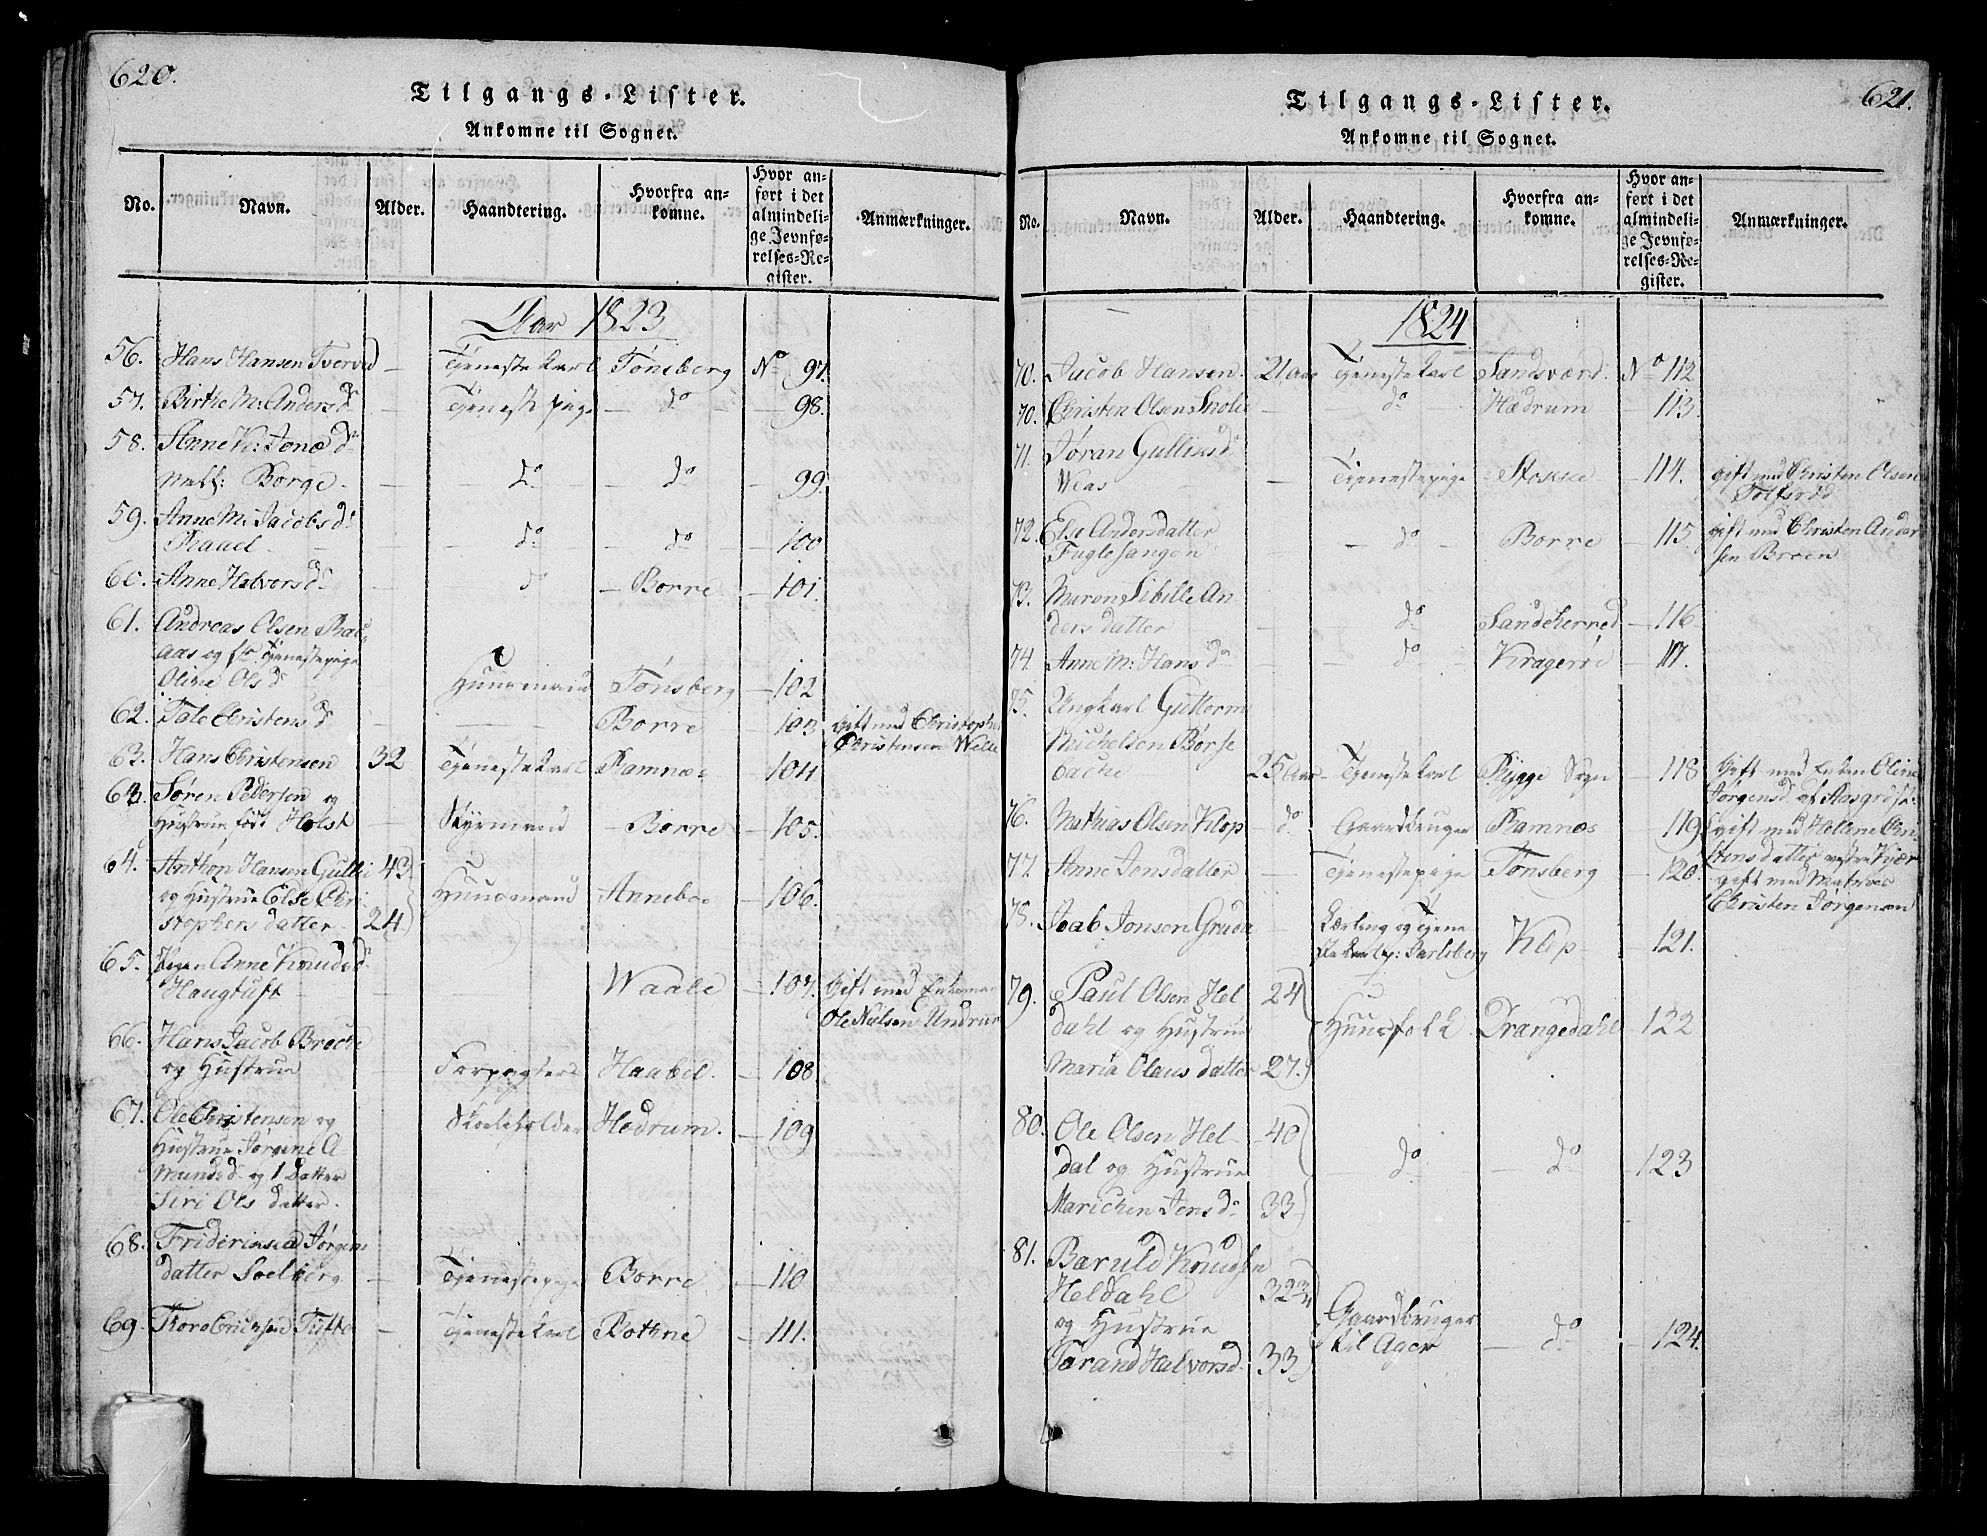 620.
Tilgangs-Lister.
Ankomne til Sognet.
No. Navn. Alder. Haandtering. Hvorfra an-
komne. Hvor an-
ført i det
almindeli-
ge Jevnfø-
relses-Re-
gister. Anmærkninger.
Aar 1823
56. Hans Hansen Tverved — Tjenestekarl Tönsberg No 97.
57. Birthe M: Andersd — Tjenestepige — do — 98.
58. Anne K: Jonsd
Borge — Do — do — 99.
59. Anne M: Jacobsd
Raael — do — do — 100
60. Anne Halvorsd — do — Borre — 101.
61. Andreas Olsen
aas og Tjenestepige
Oline Olsd Huusmand Tønsberg — 102
62. Tale Christensd — Borre — 103 Gift med Christopher
Christensen
63. Hans Christensen 32 Tjenestekarl Ramnæs — 104
63. Søren Pedersen og
Hustrue, född Holst — Styrmand — Borre — 105.
64. Anthon Hansen Gulli 43
og Hustrue Else Chri
stophersdatter 24 Huusmand Anneboe — 106.
65. Anne Knudsd
Haugtuft — Waale — 107. Gift med Enkemand
Ole Nielsen Undrum
66. Hans Jacob Broche
og Hustrue Forpagter Haabøl. — 108
67. Ole Christensen og
Hustrue Jørgine A
mundsd og 1 Datter
Siri Olsdatter. Skoleholder Hedrum. — 109
68. Jørgens
datter Soelberg — Tjenestepige Borre — 110
69. Tufte — Tjenestekarl Bothne — 111.
621.
Tilgangs-Lister.
Ankomne til Sognet.
No. Navn. Alder. Haandtering. Hvorfra an-
komne. Hvor an-
ført i det
almindeli-
ge Jevnfø-
relses-Re-
gister. Anmærkninger.
1824
70. Jacob Hansen. 21 Aar Tjenestekarl Sandsværd. No 112.
70. Christen Olsen — do Hædrum — 113.
71. Jøran Gullixsd
Weas — Tjenestepige — Stokke — 114. gift med Christen Olsen
Tolfsröd
72. Else Andersdatter
Fuglesangen — do — Borre — 115. gift med Christen Ander
sen Broen
73. Maren Sibille An
dersdatter — do Sandeherred — 116
74. Anne M: Hansd — do Kragerøe — 117.
75. Ungkarl Guttorm
Michelsen Børse
bache 25 Aar Tjenestekarl Rygge Sogn — 118 Gift med Enken Oline
Jørgensd af
76. Mathias Olsen Klop — do Gaardbruger Ramnæs 119 gift med Hellene Chri
stensdatter vestre Kjær
77. Anne Jensdatter — Tjenestepige Tønsberg — 120. gift med Matros
Christen Jørgensen
78. Isak Jonsen — Lærling og Tjene
stekarl p: Jarlsberg Klop — 121.
79. Paul Olsen Hel
dahl og Hustrue
Maria Olausdatter 24
27. Huusfolk Drangedahl 122
80. Ole Olsen Hel
dal og Hustrue
Marichen Jensd 40
33 — do — do 123
81. Baruld Knudsen
Heldahl
og Hustrue
Tarand Halvorsd. 32 3/4
33 Gaardbruger
til Ager — do — 124.